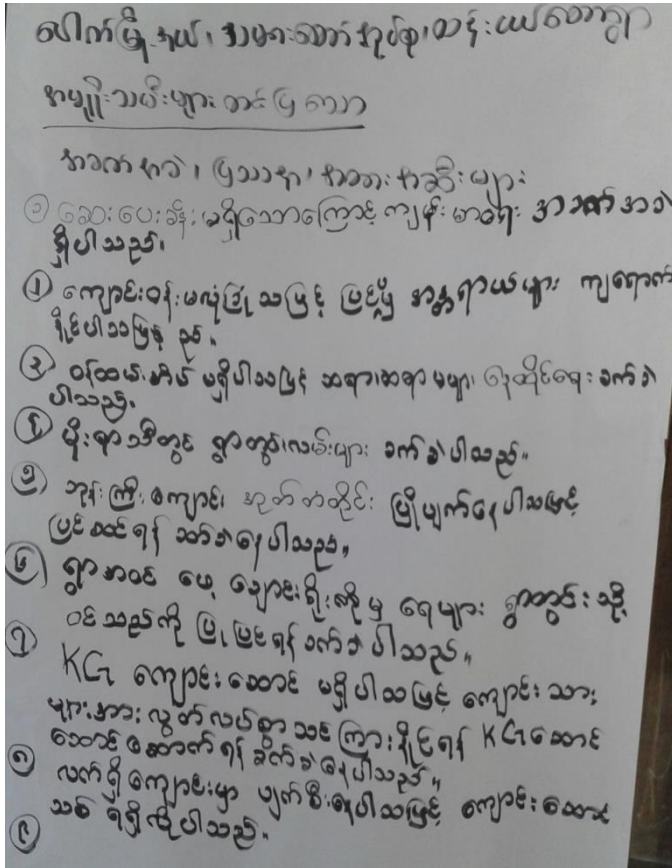 ပေါက်မြို့နယ်၊ အများတော်အုပ်စု၊ တန်းပယ်တောရွာ
အမျိုးသမီးများ တင်ပြသော
အခက်အခဲ၊ ပြဿနာ၊ အထားအသိုများ
၁ ဆေးပေးခန်း မရှိသောကြောင့် ကျန်းမာရေး အခက်အခဲ
ရှိပါသည်။
၂ ကျောင်းဝန်းမလုံခြုံသဖြင့် ပြင်ပမှ အန္တရာယ်များ ကျရောက်
နိုင်ပါသဖြင့် ည်။
၃ ဝန်ထမ်းအိမ် မရှိပါသဖြင့် ဆရာ၊ဆရာမများ နေထိုင်ရေး ခက်ခဲ
ပါသည်။
၄ မိုးရာသီတွင် ရွာတွင်းလမ်းများ ခက်ခဲပါသည်။
၅ ဘုန်းကြီးကျောင်း အုတ်တံတိုင်း ပြိုပျက်နေပါသဖြင့်
ပြင်ဆင်ရန် ခက်ခဲနေပါသည်။
၆ ရွာအဝင် ချောင်းရိုးကိုမှ ရေများ ရွာတွင်းသို့
ဝင်သည်ကို ပြုပြင်ရန် ခက်ခဲပါသည်။
၇ KG ကျောင်းဆောင် မရှိပါသဖြင့် ကျောင်းသား
များအား လွတ်လပ်စွာ သင်ကြားနိုင်ရန် KG ဆောင်
ဆောက်ရန် ခက်ခဲနေပါသည်။
၈ လက်ရှိကျောင်းမှာ ပျက်စီးနေပါသဖြင့် ကျောင်းဆောင်
သစ် ရရှိလိုပါသည်။
၉